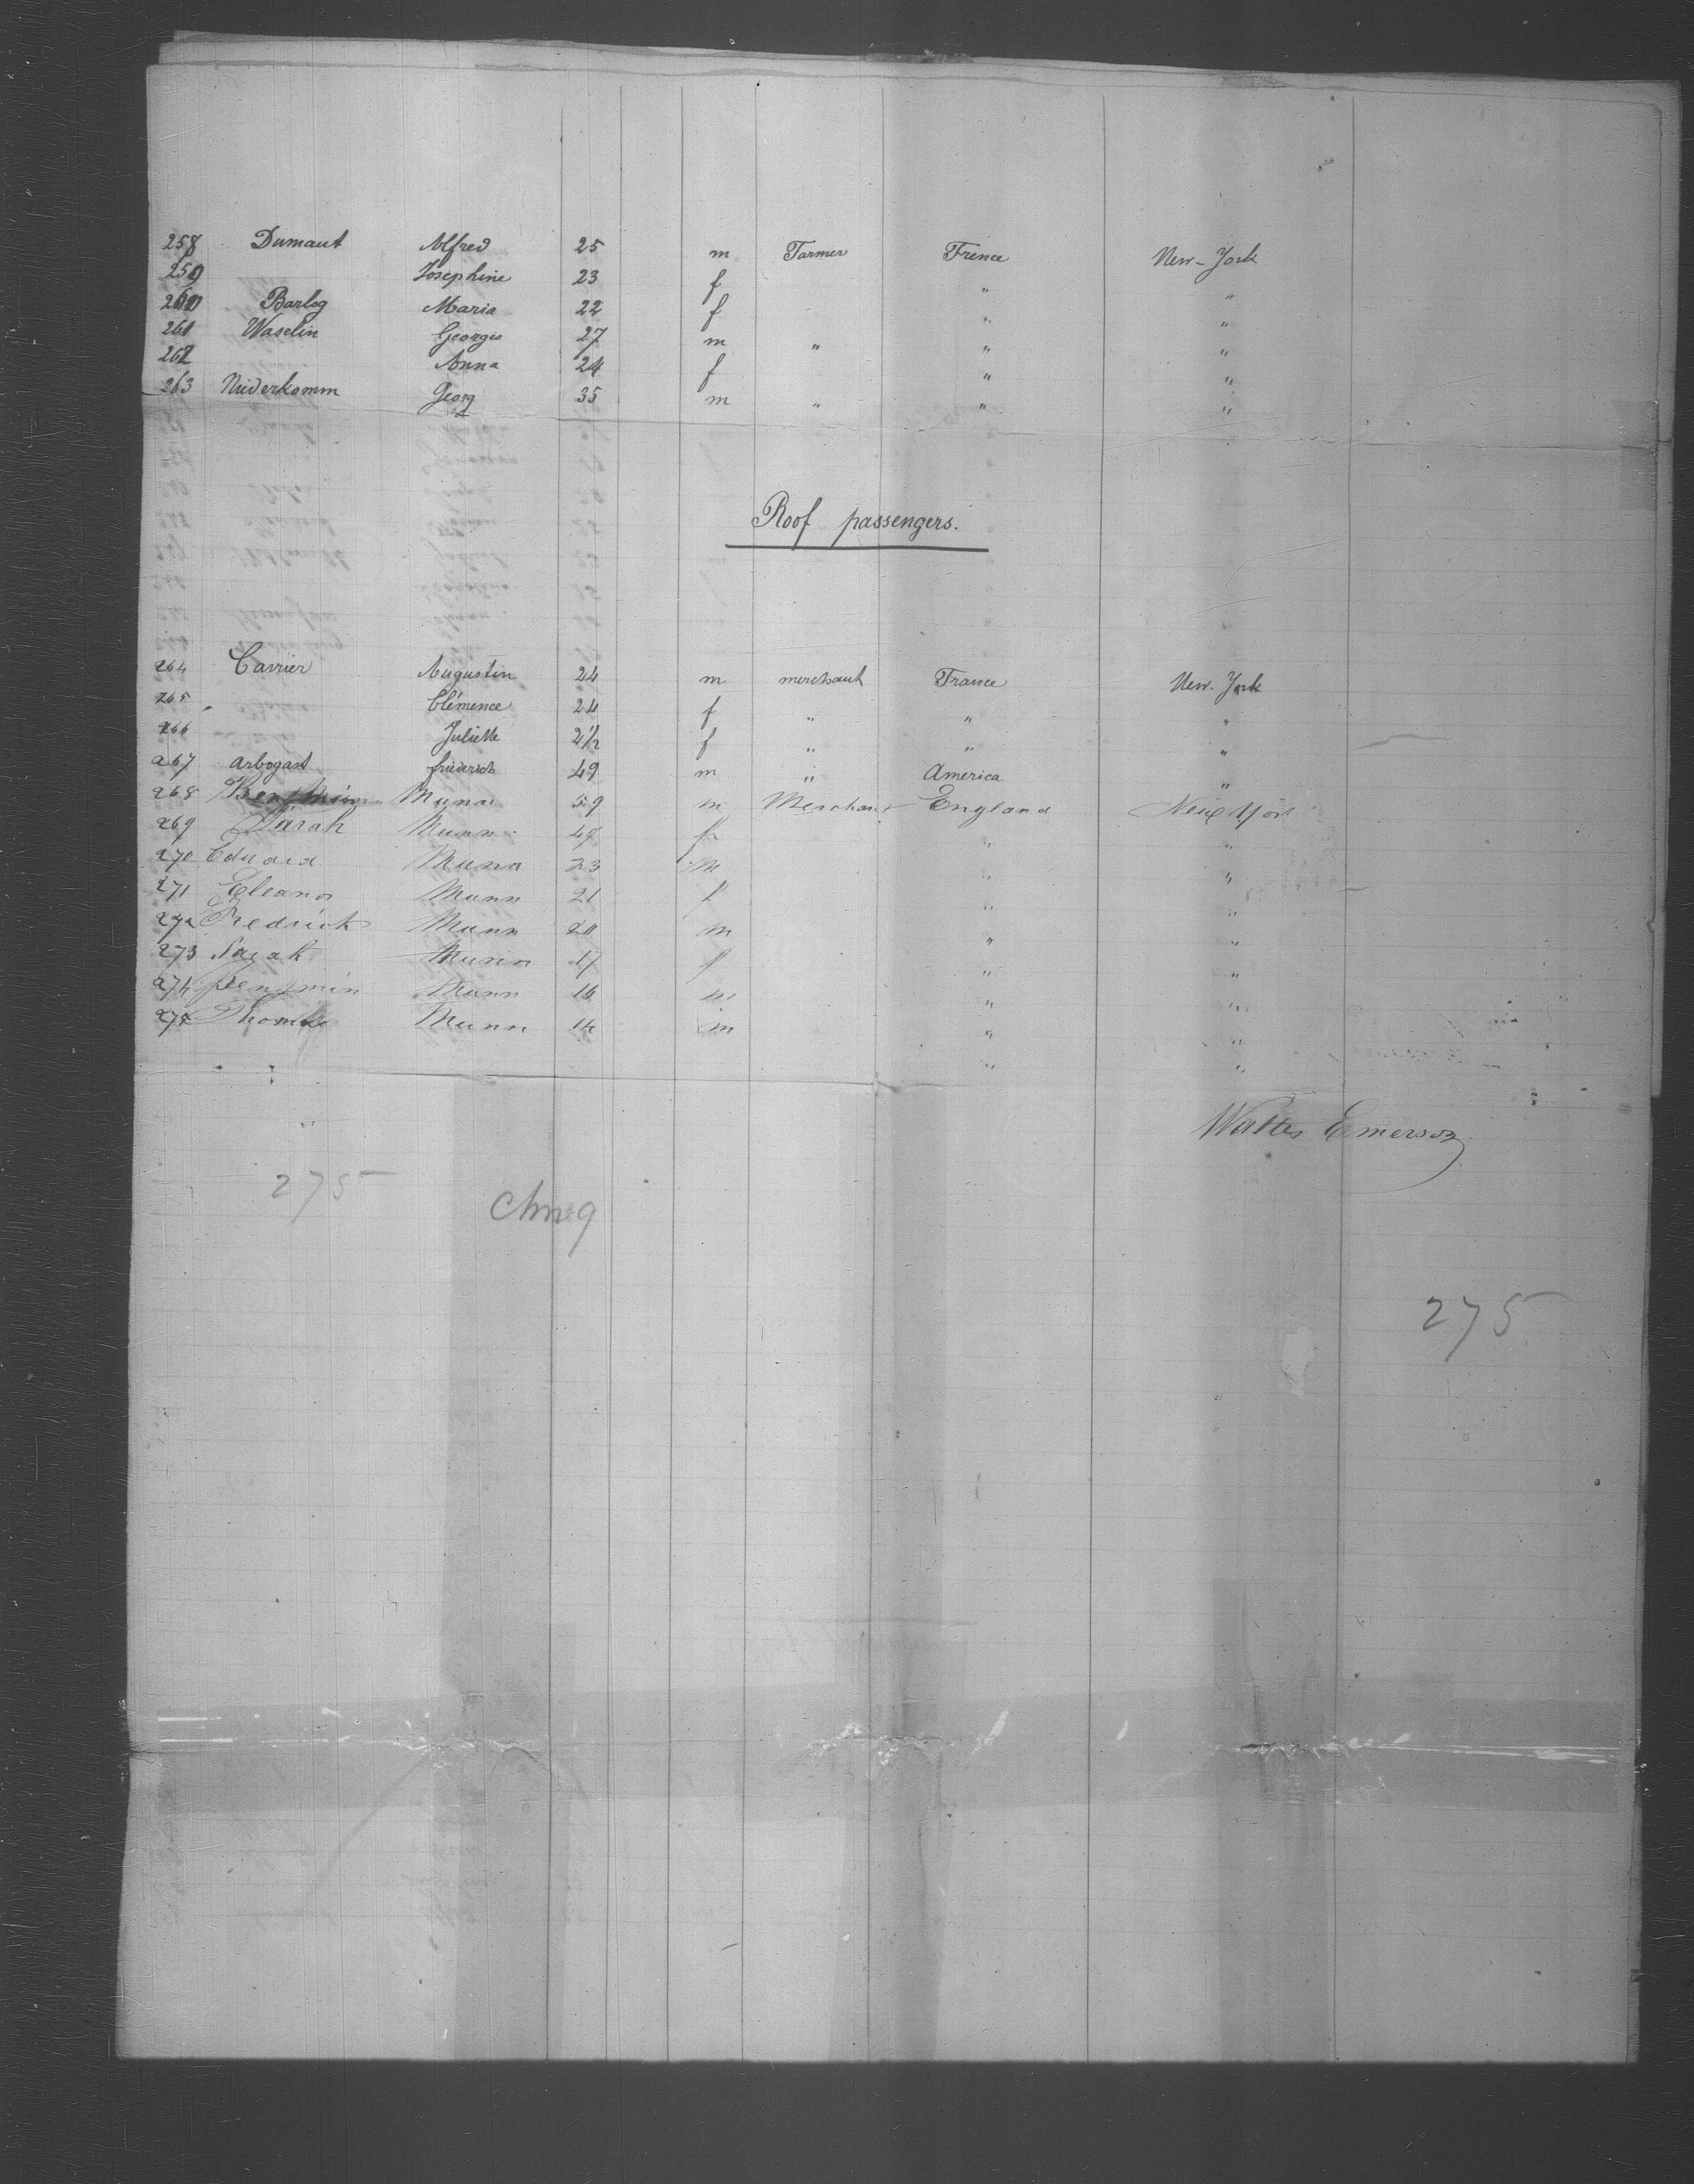 258 Dumaut Alfred 25 m Farmer Frence New-York
259 Josephine 23 f " "
260 Barlog Maria 22 f " "
261 Waselin Georges 27 m " " "
262 Anna 24 f " "
263 Niederkomm Georg 35 m " " "
Roof passengers.
264 Carrier Augustin 24 m merchant France New-York
265 Clémence 24 f " " "
266 Juliette 2 1/2 f " " "
267 Arbogast friederich 49 m " America "
268 Munn 59 m Merchant England New York
269 Sarah Munn 47 f " "
270 Eduard Munn 23 M " "
271 Eleanor Munn 21 f " "
272 Fredrick Munn 20 m " "
273 Sarah Munn 17 f " "
274 Benjmin Munn 16 m " "
275 Thomas Munn 14 m " "
" "
Walter Emerson
275
275